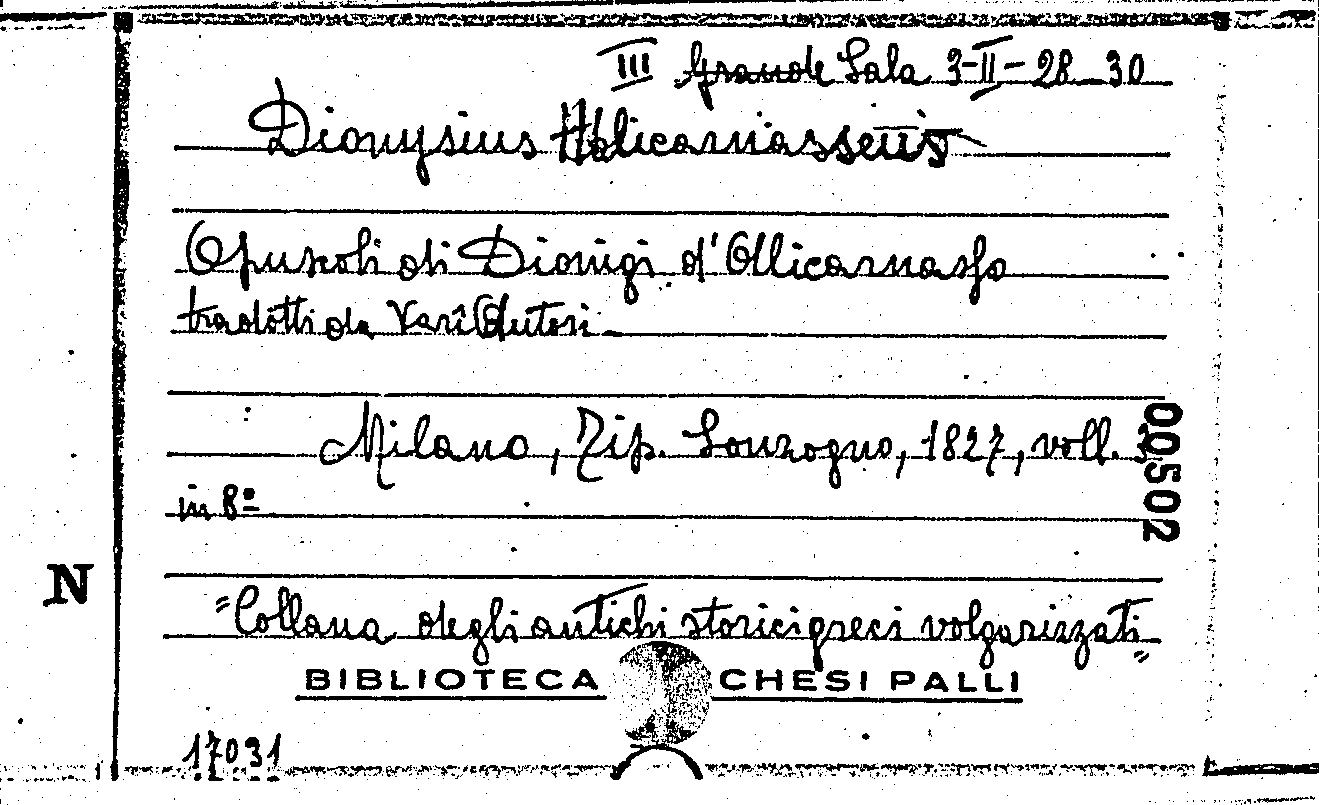 III Grande Sala 3-II-28-30
Dionysius Halicarnasseus
Opuscoli di Dionigi d'Allicarnasso
tradotti da Varî Autori
Milano, Tip. Sonzogno, 1827, voll. 3
in 8º
00502
N
"Collana degli antichi storici greci volgarizzati"
BIBLIOTECA CHESI PALLI
17031